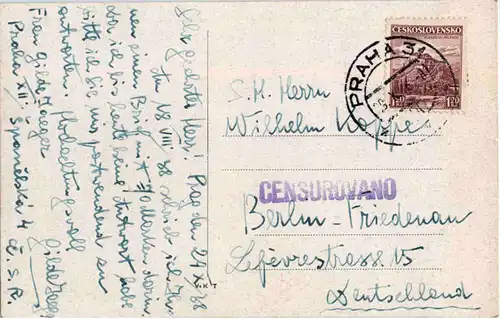 Sehr geehrter Herr! Prag den 24 X. 38
Am 18 VIII 38 schrieb ich Ih-
nen einen Brief mit Marken darin,
da ich bis heute keine Antwort habe
bitte ich Sie mir postwendend zu
antworten. Hochachtungsvoll
Frau Gilda
Praha XII. Španělská 4
Č. S. R.
ČESKOSLOVENSKO
1·20 1·20
PRAHA 31
S. H. Herrn
Wilhelm Koppe
CENSUROVÁNO
Berlin-Friedenau
Lefèvrestrasse 15
Deutschland
V.K.T